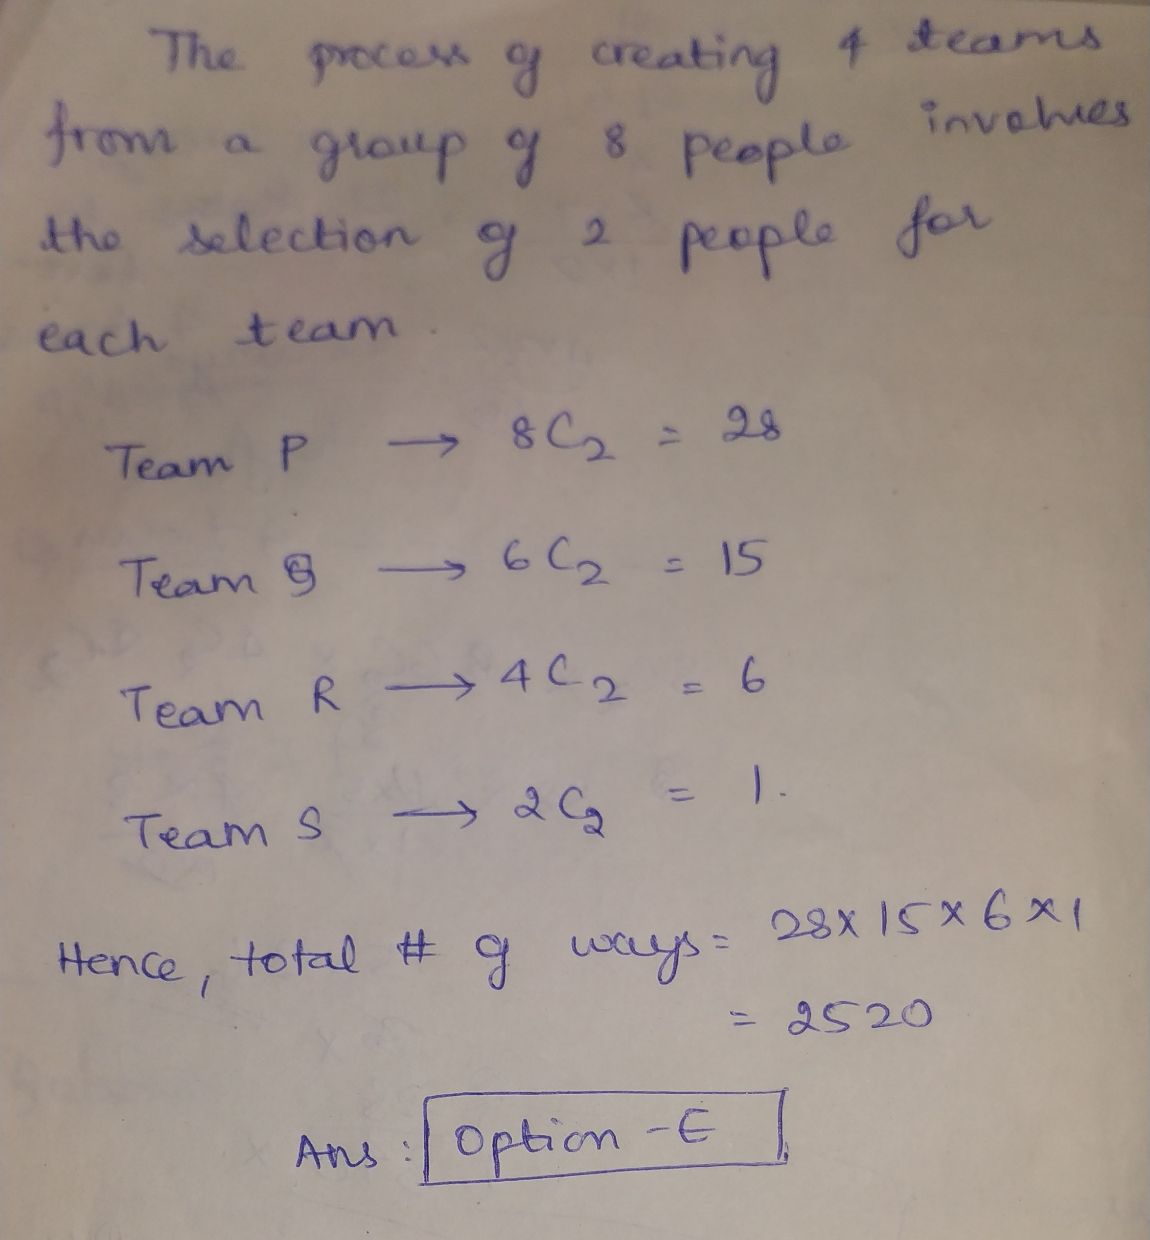 The process of creating 4 teams
from a group of 8 people involves
the selection of 2 people for
each team.
Team P → 8C₂ = 28
Team Q → 6C₂ = 15
Team R → 4C₂ = 6
Team S → 2C₂ = 1.
Hence, total # of ways = 28 x 15 x 6 x 1
= 2520
Ans: Option - E